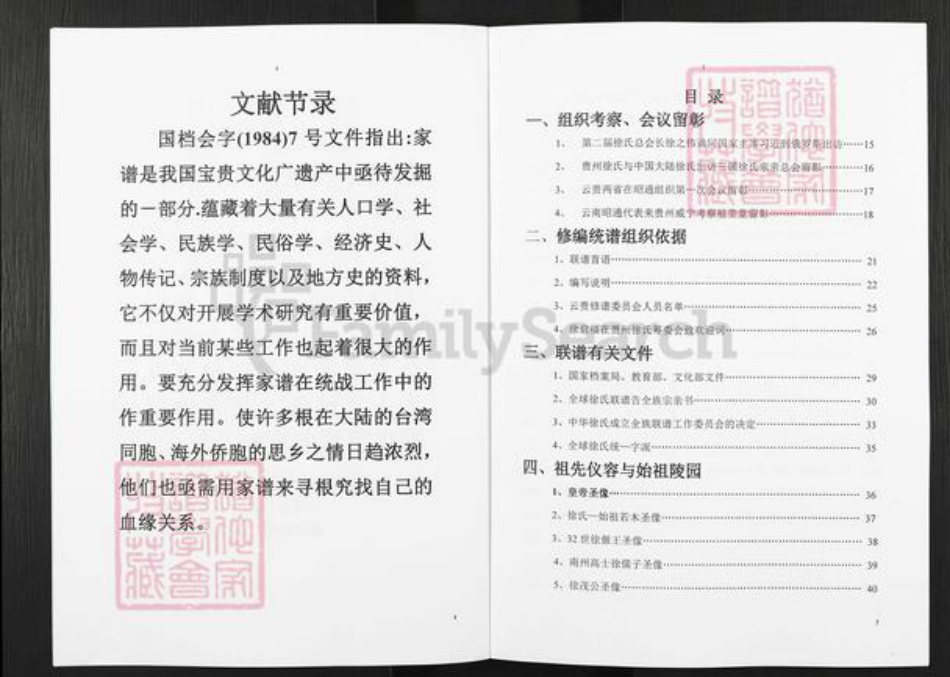 文献节录
国档会字(1984)7 号文件指出:家
谱是我国宝贵文化广遗产中亟待发掘
的一部分.蕴藏着大量有关人口学、社
会学、民族学、民俗学、经济史、人
物传记、宗族制度以及地方史的资料，
它不仅对开展学术研究有重要价值，
而且对当前某些工作也起着很大的作
用。要充分发挥家谱在统战工作中的
作重要作用。使许多根在大陆的台湾
同胞、海外侨胞的思乡之情日趋浓烈，
他们也亟需用家谱来寻根究找自己的
血缘关系。
目 录
一、组织考察、会议留影
1、 第二届徐氏总会长徐之伟 国家主席习近到俄罗斯出访……15
2、 贵州徐氏与中国大陆徐氏出访 徐氏宗亲总会留影……16
3、 云贵两省在昭通组织第一次会议留影……17
4、 云南昭通代表来贵州威宁考察 留影……18
二、修编统谱组织依据
1、联谱首语……21
2、编写说明……22
3、云贵修谱委员会人员名单……25
4、徐启福在贵州徐氏筹委会致欢迎词……26
三、联谱有关文件
1、国家档案局、教育部、文化部文件……29
2、全球徐氏联谱告全族宗亲书……30
3、中华徐氏成立全族联谱工作委员会的决定……33
4、全球徐氏统一字派……35
四、祖先仪容与始祖陵园
1、皇帝圣像……36
2、徐氏一始祖若木圣像……37
3、32 世徐偃王圣像……38
4、南州高士徐儒子圣像……39
5、徐茂公圣像……40
5
FamilySearch